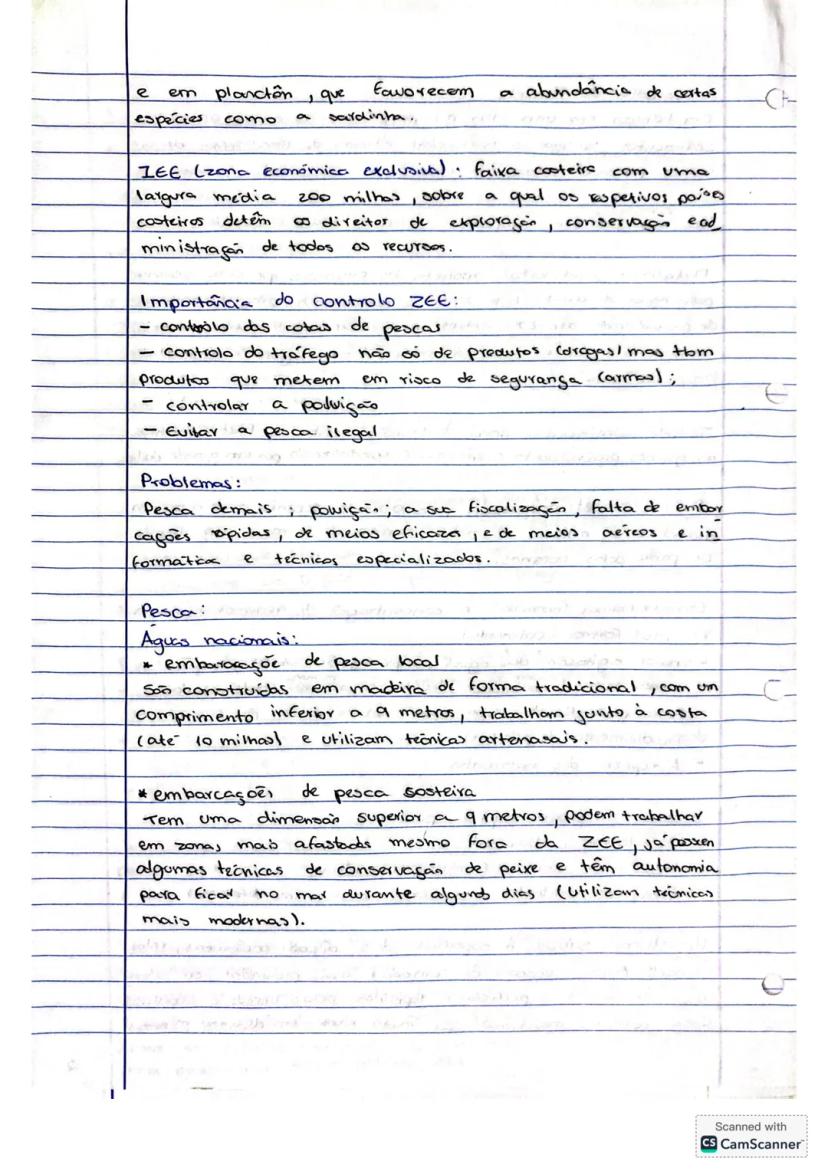 e em planctôn, que favorecem a abundância de certas
espécies como a sardinha.
ZEE (zona económica exclusiva): faixa costeira com uma
largura média 200 milhas, sobre a qual os respetivos países
costeiros detêm os direitor de exploração, conservação e ad
ministração de todos os recursos.
Importância do controlo ZEE:
- controlo das cotas de pescas
- controlo do tráfego não só de produtos (drogas) mas tbm
produtos que metem em risco de segurança (armas);
- controlar a poluição
- Evitar a pesca ilegal
Problemas:
Pesca demais; poluição; a sua fiscalização, falta de embar
cações rápidas, de meios eficazes, e de meios aéreos e in
formática e técnicos especializados.
Pesca:
Águas nacionais:
* embarocaçõe de pesca local
São construídas em madeira de forma tradicional, com um
comprimento inferior a 9 metros, trabalham junto à costa
(até 10 milhas) e utilizam técnicas artenasais.
* embarcações de pesca sosteira
Tem uma dimensão superior a 9 metros, podem trabalhar
em zonas mais afastads mesmo fora da ZEE, já possen
algumas técnicas de conservação de peixe e têm autonomia
para ficar no mar durante alguns dias (Utilizam técnicas
mais modernas).
Scanned with
CS CamScanner